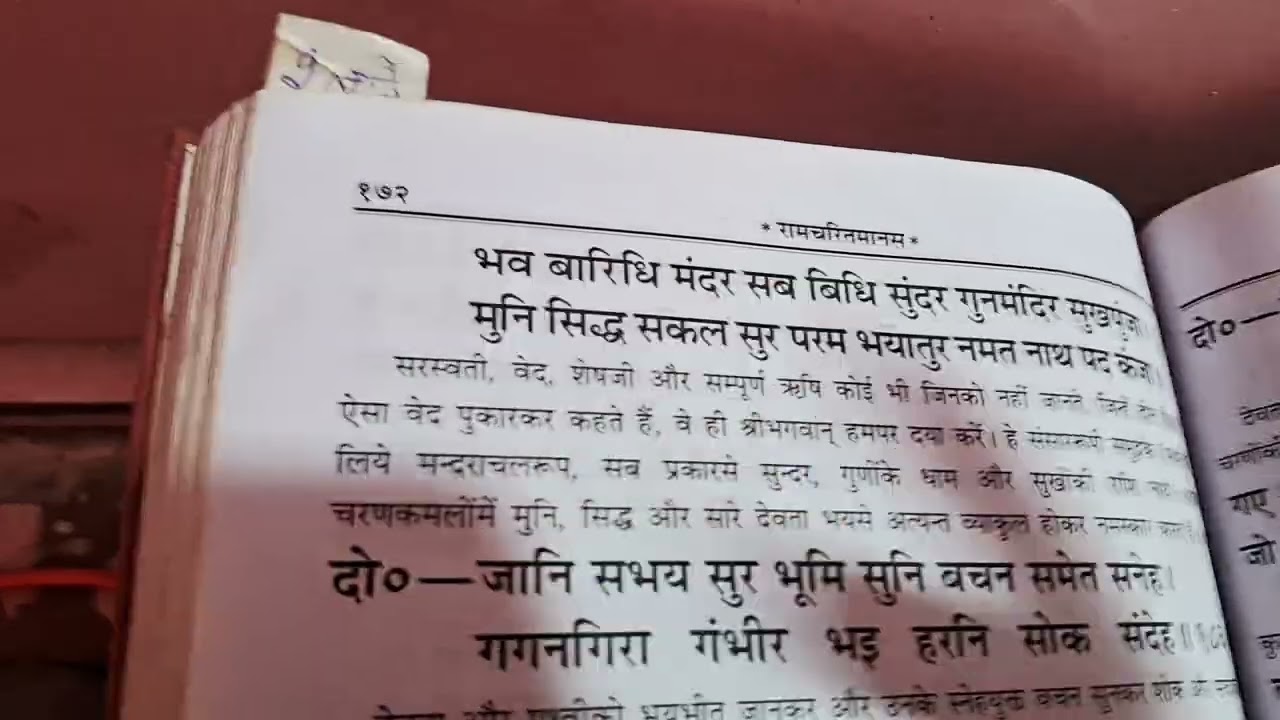 १७२
* रामचरितमानस *
भव बारिधि मंदर सब बिधि सुंदर गुनमंदिर सुखपुंजा।
मुनि सिद्ध सकल सुर परम भयातुर नमत नाथ पद कंजा।
सरस्वती, वेद, शेषजी और सम्पूर्ण ऋषि कोई भी जिनको नहीं जानते, जिन्हें दीन
ऐसा वेद पुकारकर कहते हैं, वे ही श्रीभगवान् हमपर दया करें। हे संसाररूपी समुद्रके
लिये मन्दराचलरूप, सब प्रकारसे सुन्दर, गुणोंके धाम और सुखोंकी राशि नाथ
चरणकमलोंमें मुनि, सिद्ध और सारे देवता भयसे अत्यन्त व्याकुल होकर नमस्कार करते हैं।
दो०—जानि सभय सुर भूमि सुनि बचन समेत सनेह।
गगनगिरा गंभीर भइ हरनि सोक संदेह॥
और पृथ्वीको भयभीत जानकर और उनके स्नेहयुक्त वचन सुनकर शोक
दो०—
गए
जो